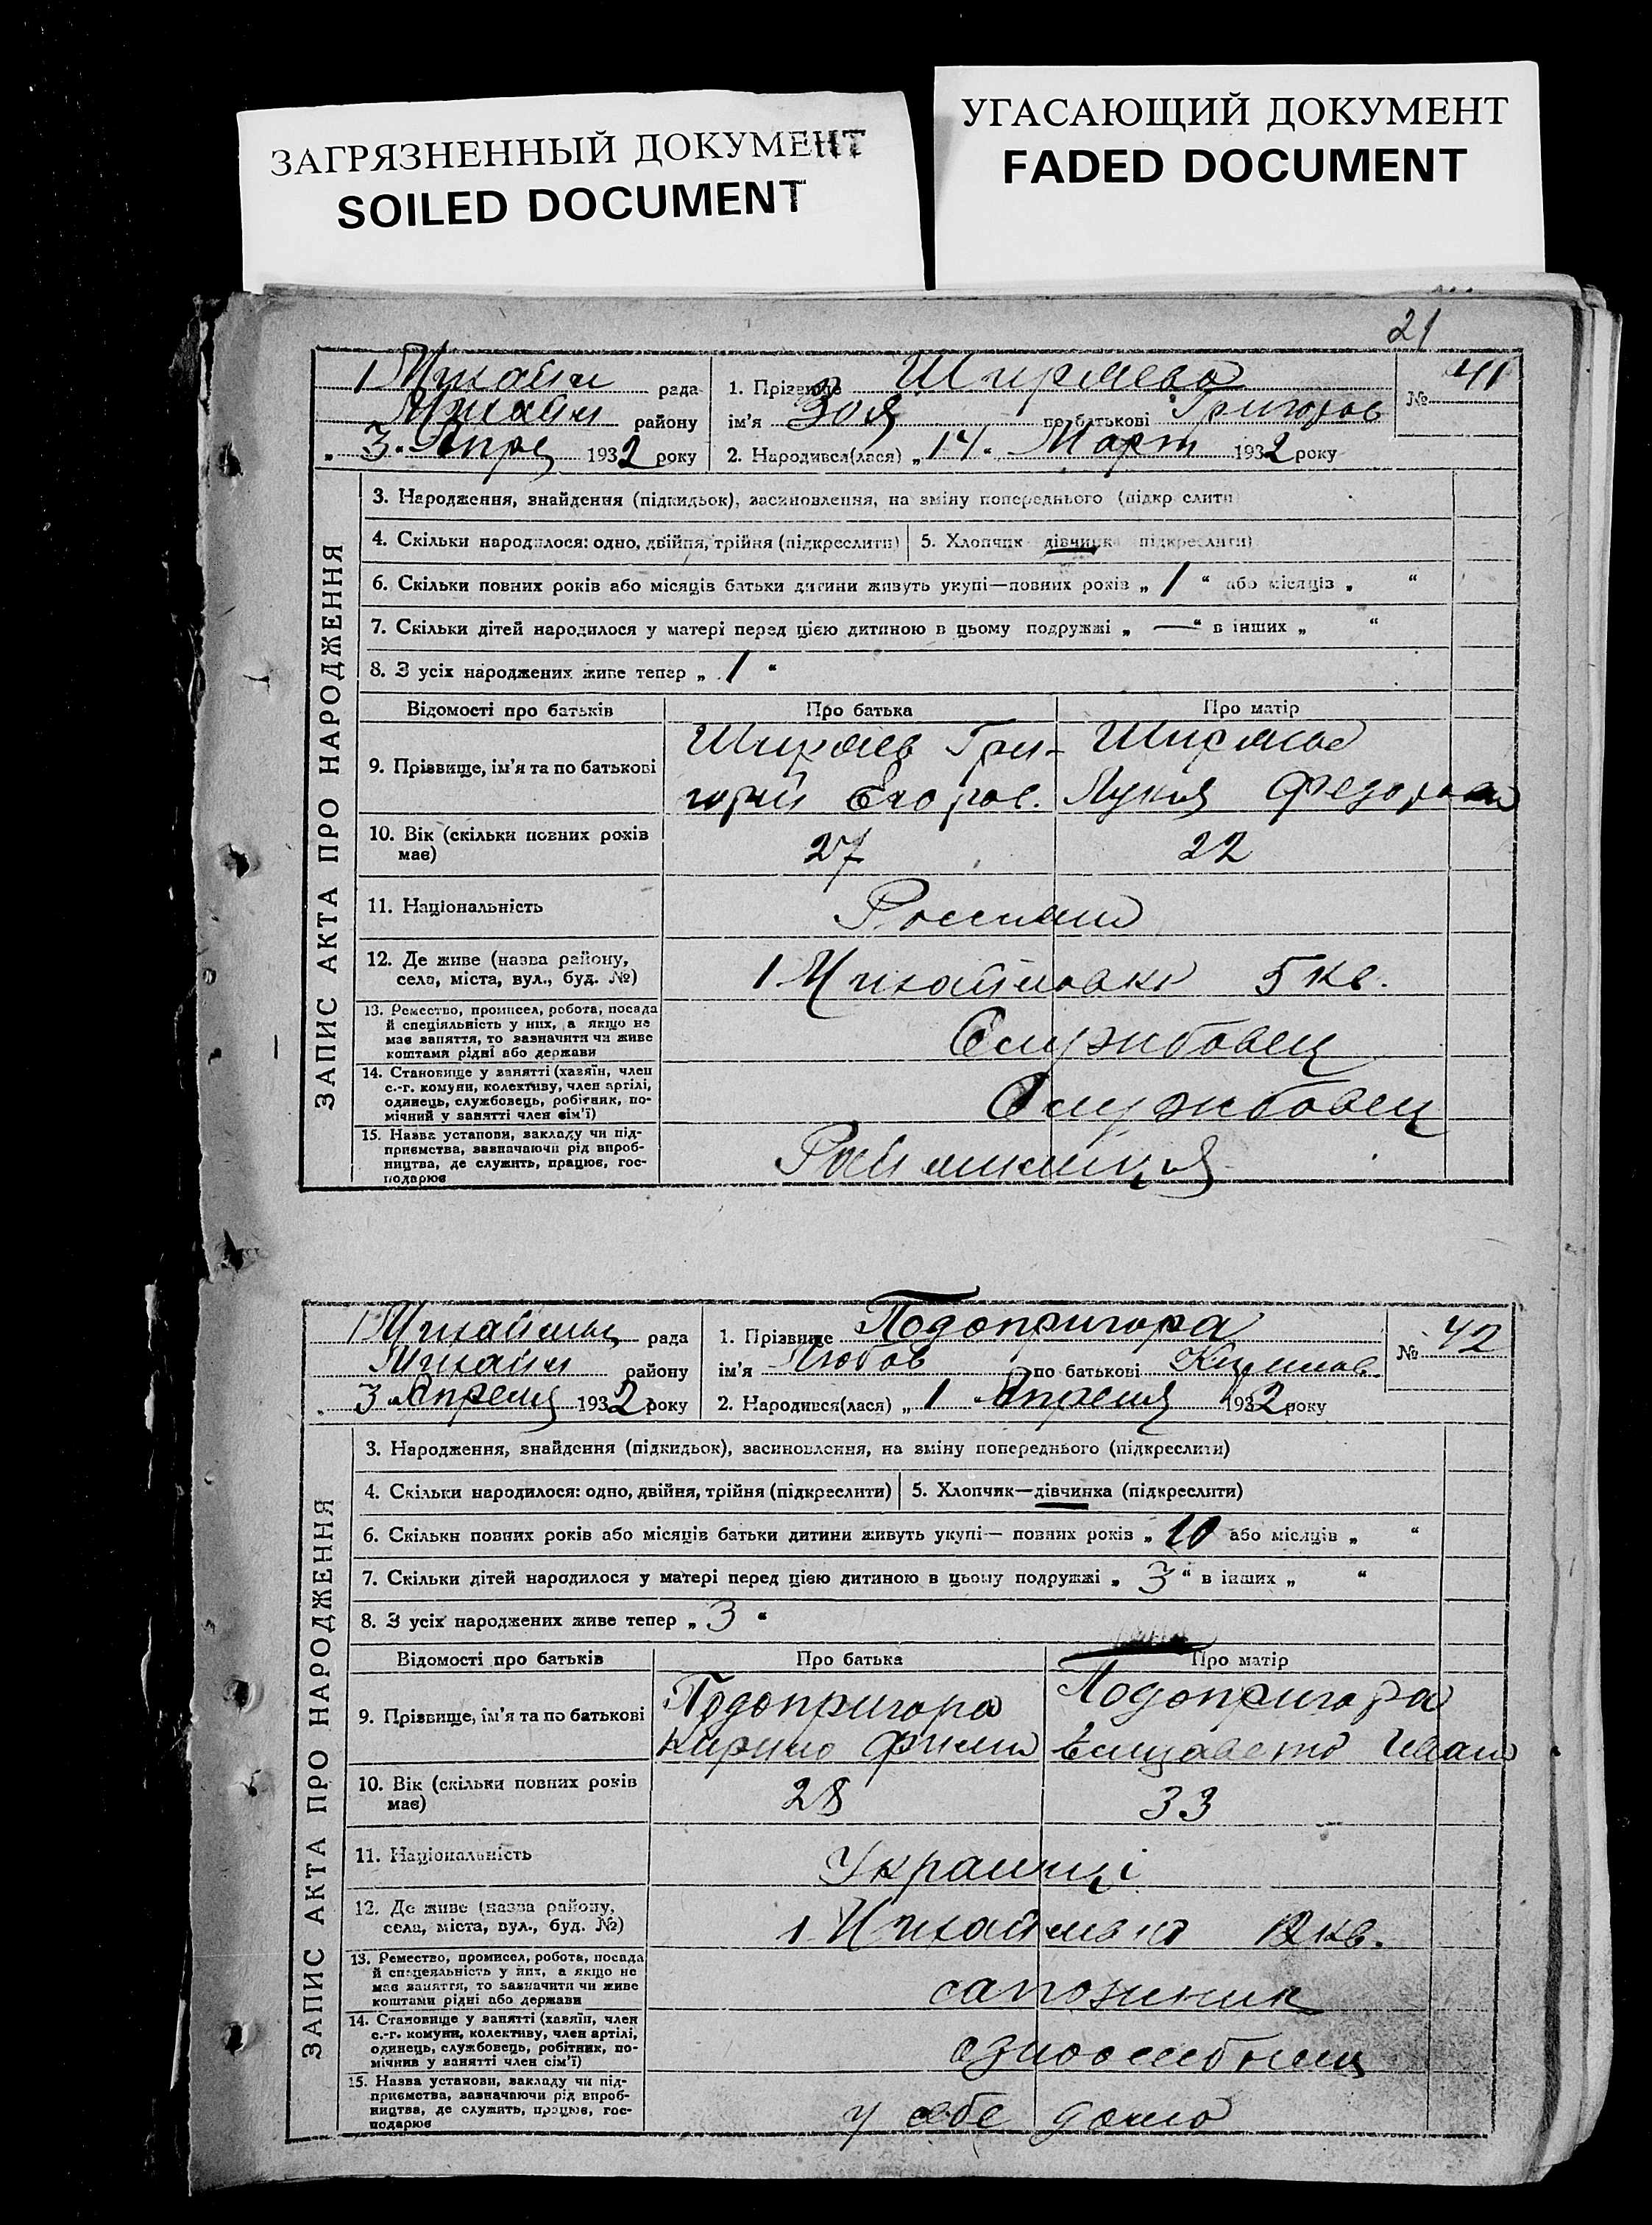 ЗАГРЯЗНЕННЫЙ ДОКУМЕНТ
SOILED DOCUMENT
УГАСАЮЩИЙ ДОКУМЕНТ
FADED DOCUMENT
21
ЗАПИС АКТА ПРО НАРОДЖЕННЯ
1 Михайл рада
Михайл району
„ 3 „ Апре 1932 року
1. Прізвище Ширяева
ім'я Зоя по батькові Григоров
№ 41
2. Народився(лася) „ 14 „ Март 1932 року
3. Народження, знайдення (підкидьок), засиновлення, на зміну попереднього (підкреслити)
4. Скільки народилося: одно, двійня, трійня (підкреслити)
5. Хлопчик дівчинка підкреслити)
6. Скільки повних років або місяців батьки дитини живуть укупі—повних років „ 1 “ або місяців „ “
7. Скільки дітей народилося у матері перед цією дитиною в цьому подружжі „ — “ в інших „ “
8. З усіх народжених живе тепер „ 1 “
Відомості про батьків Про батька Про матір
9. Прізвище, ім'я та по батькові
Ширяев Гри-
горий Егоров.
Ширяева
Лукия Федоровн
10. Вік (скільки повних років
має)
27 22
11. Національність
12. Де живе (назва району,
села, міста, вул., буд. №)
1 Михайловка 5 кв.
13. Ремество, промисел, робота, посада
й спеціяльність у них, а якщо не
має заняття, то зазначити чи живе
коштами рідні або держави
Службовец
14. Становище у занятті (хазяїн, член
с.-г. комуни, колективу, член артілі,
одинець, службовець, робітник, по-
мічний у занятті член сім'ї)
Службовец
15. Назва установи, закладу чи під-
приємства, зазначаючи рід вироб-
ництва, де служить, працює, гос-
подарює
Рай милиция
ЗАПИС АКТА ПРО НАРОДЖЕННЯ
1 рада
Михайл району
„ 3 Апреля 1932 року
1. Прізвище Подопригора
ім'я Любов по батькові Кирилов
№ 42
2. Народився(лася) „ 1 Апреля 1932 року
3. Народження, знайдення (підкидьок), засиновлення, на зміну попереднього (підкреслити)
4. Скільки народилося: одно, двійня, трійня (підкреслити)
5. Хлопчик—дівчинка (підкреслити)
6. Скільки повних років або місяців батьки дитини живуть укупі— повних років „ 10 або місяців „ “
7. Скільки дітей народилося у матері перед цією дитиною в цьому подружжі „ 3 “ в інших „ “
8. З усіх народжених живе тепер „ 3 “
Відомості про батьків Про батька Про матір
9. Прізвище, ім'я та по батькові
Подопригора
Кирило Филип
Подопригора
Елизавета Иван
10. Вік (скільки повних років
має)
28 33
11. Національність
Украинці
12. Де живе (назва району,
села, міста, вул., буд. №)
1 кв.
13. Ремество, промисел, робота, посада
й спецеяльність у них, а якщо не
має заняття, то зазначити чи живе
коштами рідні або держави
сапожник
14. Становище у занятті (хазяїн, член
с.-г. комуни, колективу, член артілі,
одинець, службовець, робітник, по-
мічник у занятті член сім'ї)
15. Назва установи, закладу чи під-
приємства, зазначаючи рід вироб-
ництва, де служить, працює, гос-
подарює
у себе дома